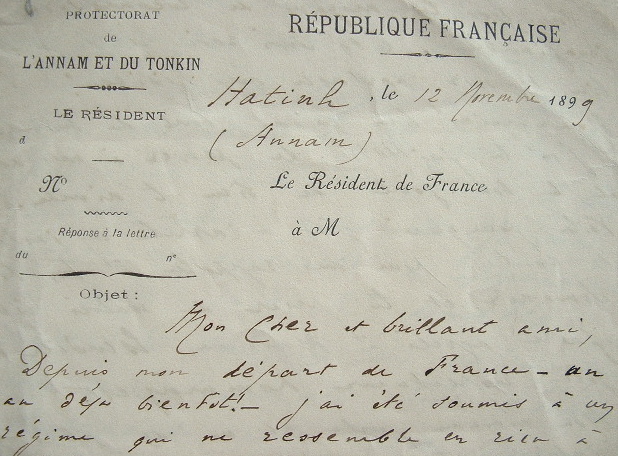 PROTECTORAT
de
L'ANNAM ET DU TONKIN
LE RÉSIDENT
d
Nº
Réponse à la lettre
du nº
Objet :
RÉPUBLIQUE FRANÇAISE
Hatinh, le 12 Novembre 1899
(Annam)
Le Résident de France
à M
Mon Cher et brillant ami,
Depuis mon départ de France – un
an déjà bientôt! – j'ai été soumis à un
régime qui ne ressemble en rien à